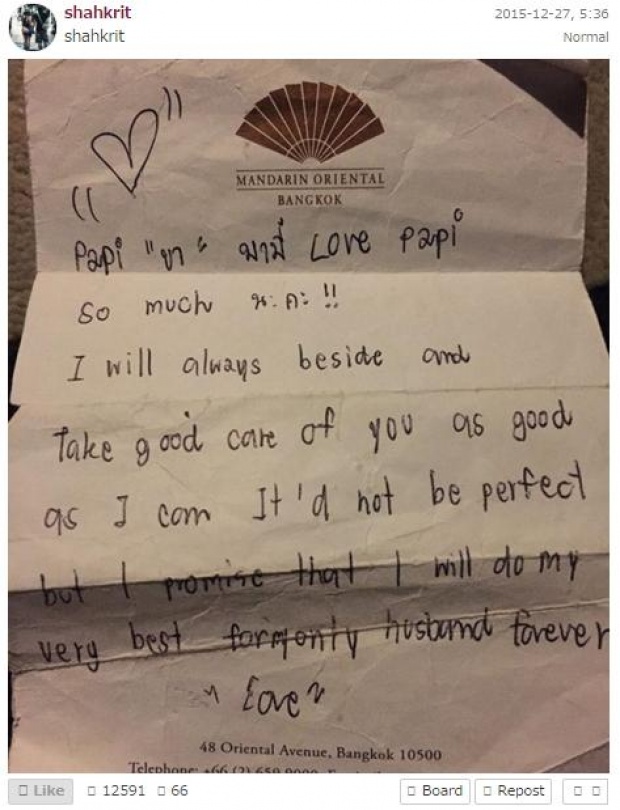 shahkrit
shahkrit
2015-12-27, 5:36
Normal
MANDARIN ORIENTAL
BANGKOK
Papi "ขา" มามี้ Love Papi
So much นะคะ !!
I will always beside and
Take good care of you as good
as I can It'd not be perfect
but I promise that I will do my
very best for my only husband forever
Love
48 Oriental Avenue, Bangkok 10500
Telephone: +66 (2) 659 9000
Like
12591
66
Board
Repost